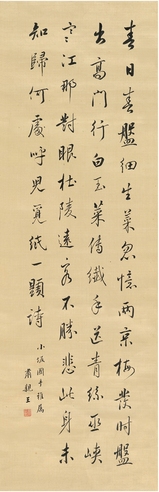 春日春盤細生菜忽憶兩京梅發時盤
出高門行白玉菜傳纖手送青絲巫峽
寒江那對眼杜陵遠客不勝悲此身未
知歸何處呼兒覓紙一題詩
小坂國手雅屬
肅親王